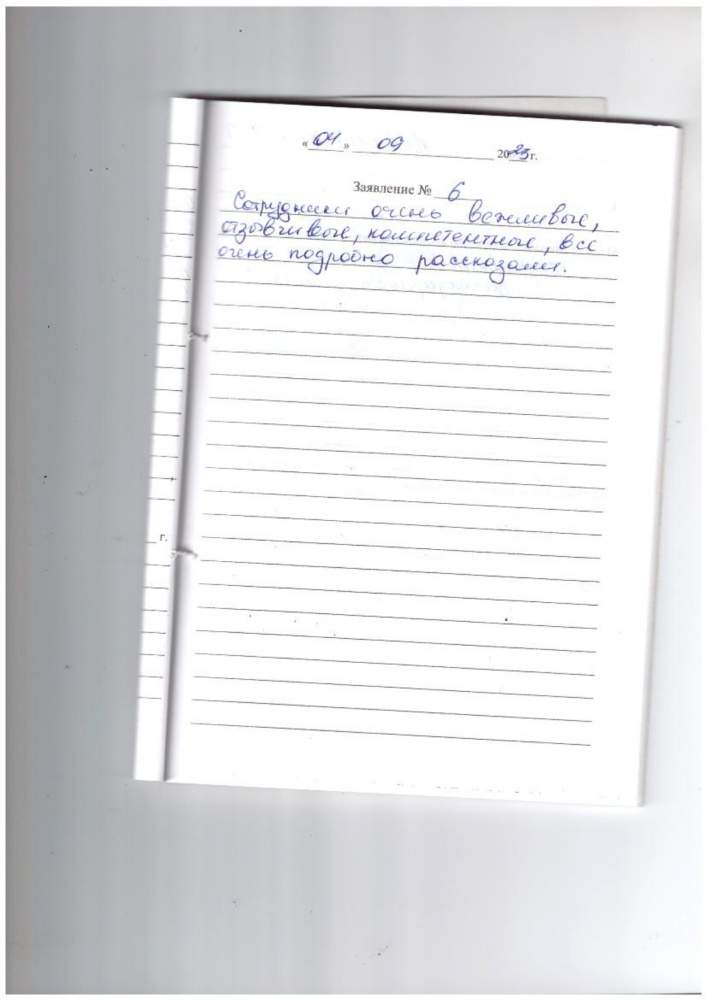 «04» 09 2023г.
Заявление № 6
Сотрудники очень вежливые,
отзывчивые, компетентные, все
очень подробно рассказали.
г.